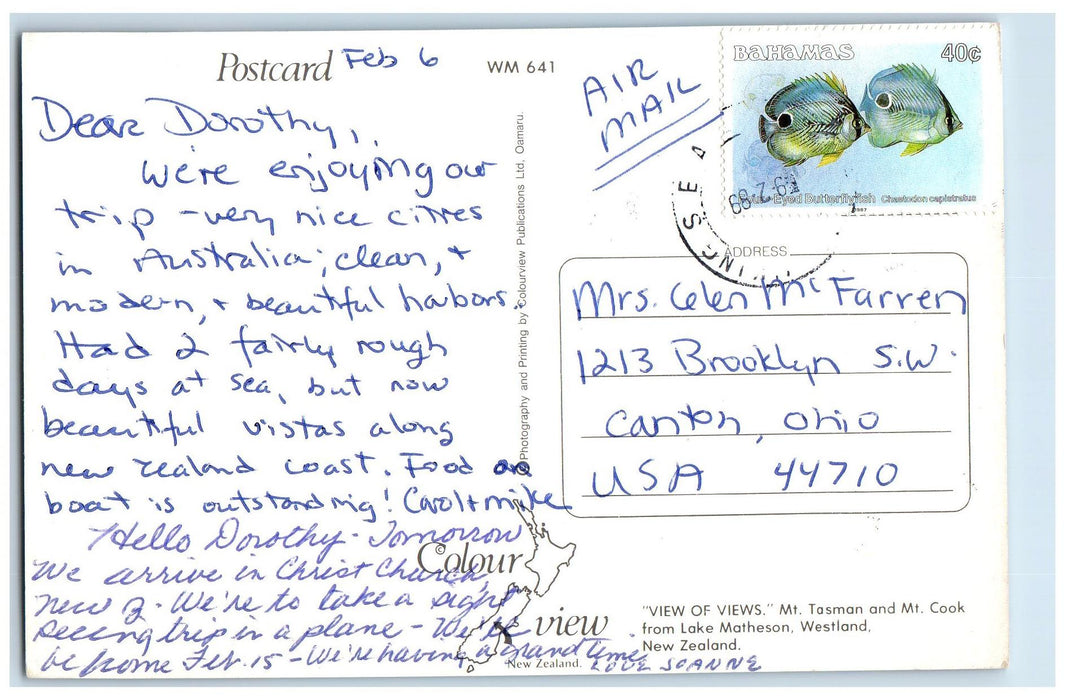 Postcard Feb 6 WM 641
Dear Dorothy,
We're enjoying our
trip - very nice cities
in Australia; clean, +
modern, + beautiful harbors.
Had 2 fairly rough
days at sea, but now
beautiful vistas along
new zealand coast. Food on
boat is outstanding! Carol + mike
Hello Dorothy - Tomorrow
We arrive in Christ Church,
New Z. We're to take a sight
seeing trip in a plane - We'll
be home Feb. 15 - We're having a grand time.
LOVE JOANNE
© Photography and Printing by Colourview Publications Ltd. Oamaru.
Colour
view
New Zealand.
AIR
MAIL
BAHAMAS 40c
-Eyed Butterflyfish Chaetodon capistratus
1987
ADDRESS
Mrs. Glen McFarren
1213 Brooklyn S.W.
Canton, Ohio
USA 44710
"VIEW OF VIEWS." Mt. Tasman and Mt. Cook
from Lake Matheson, Westland,
New Zealand.